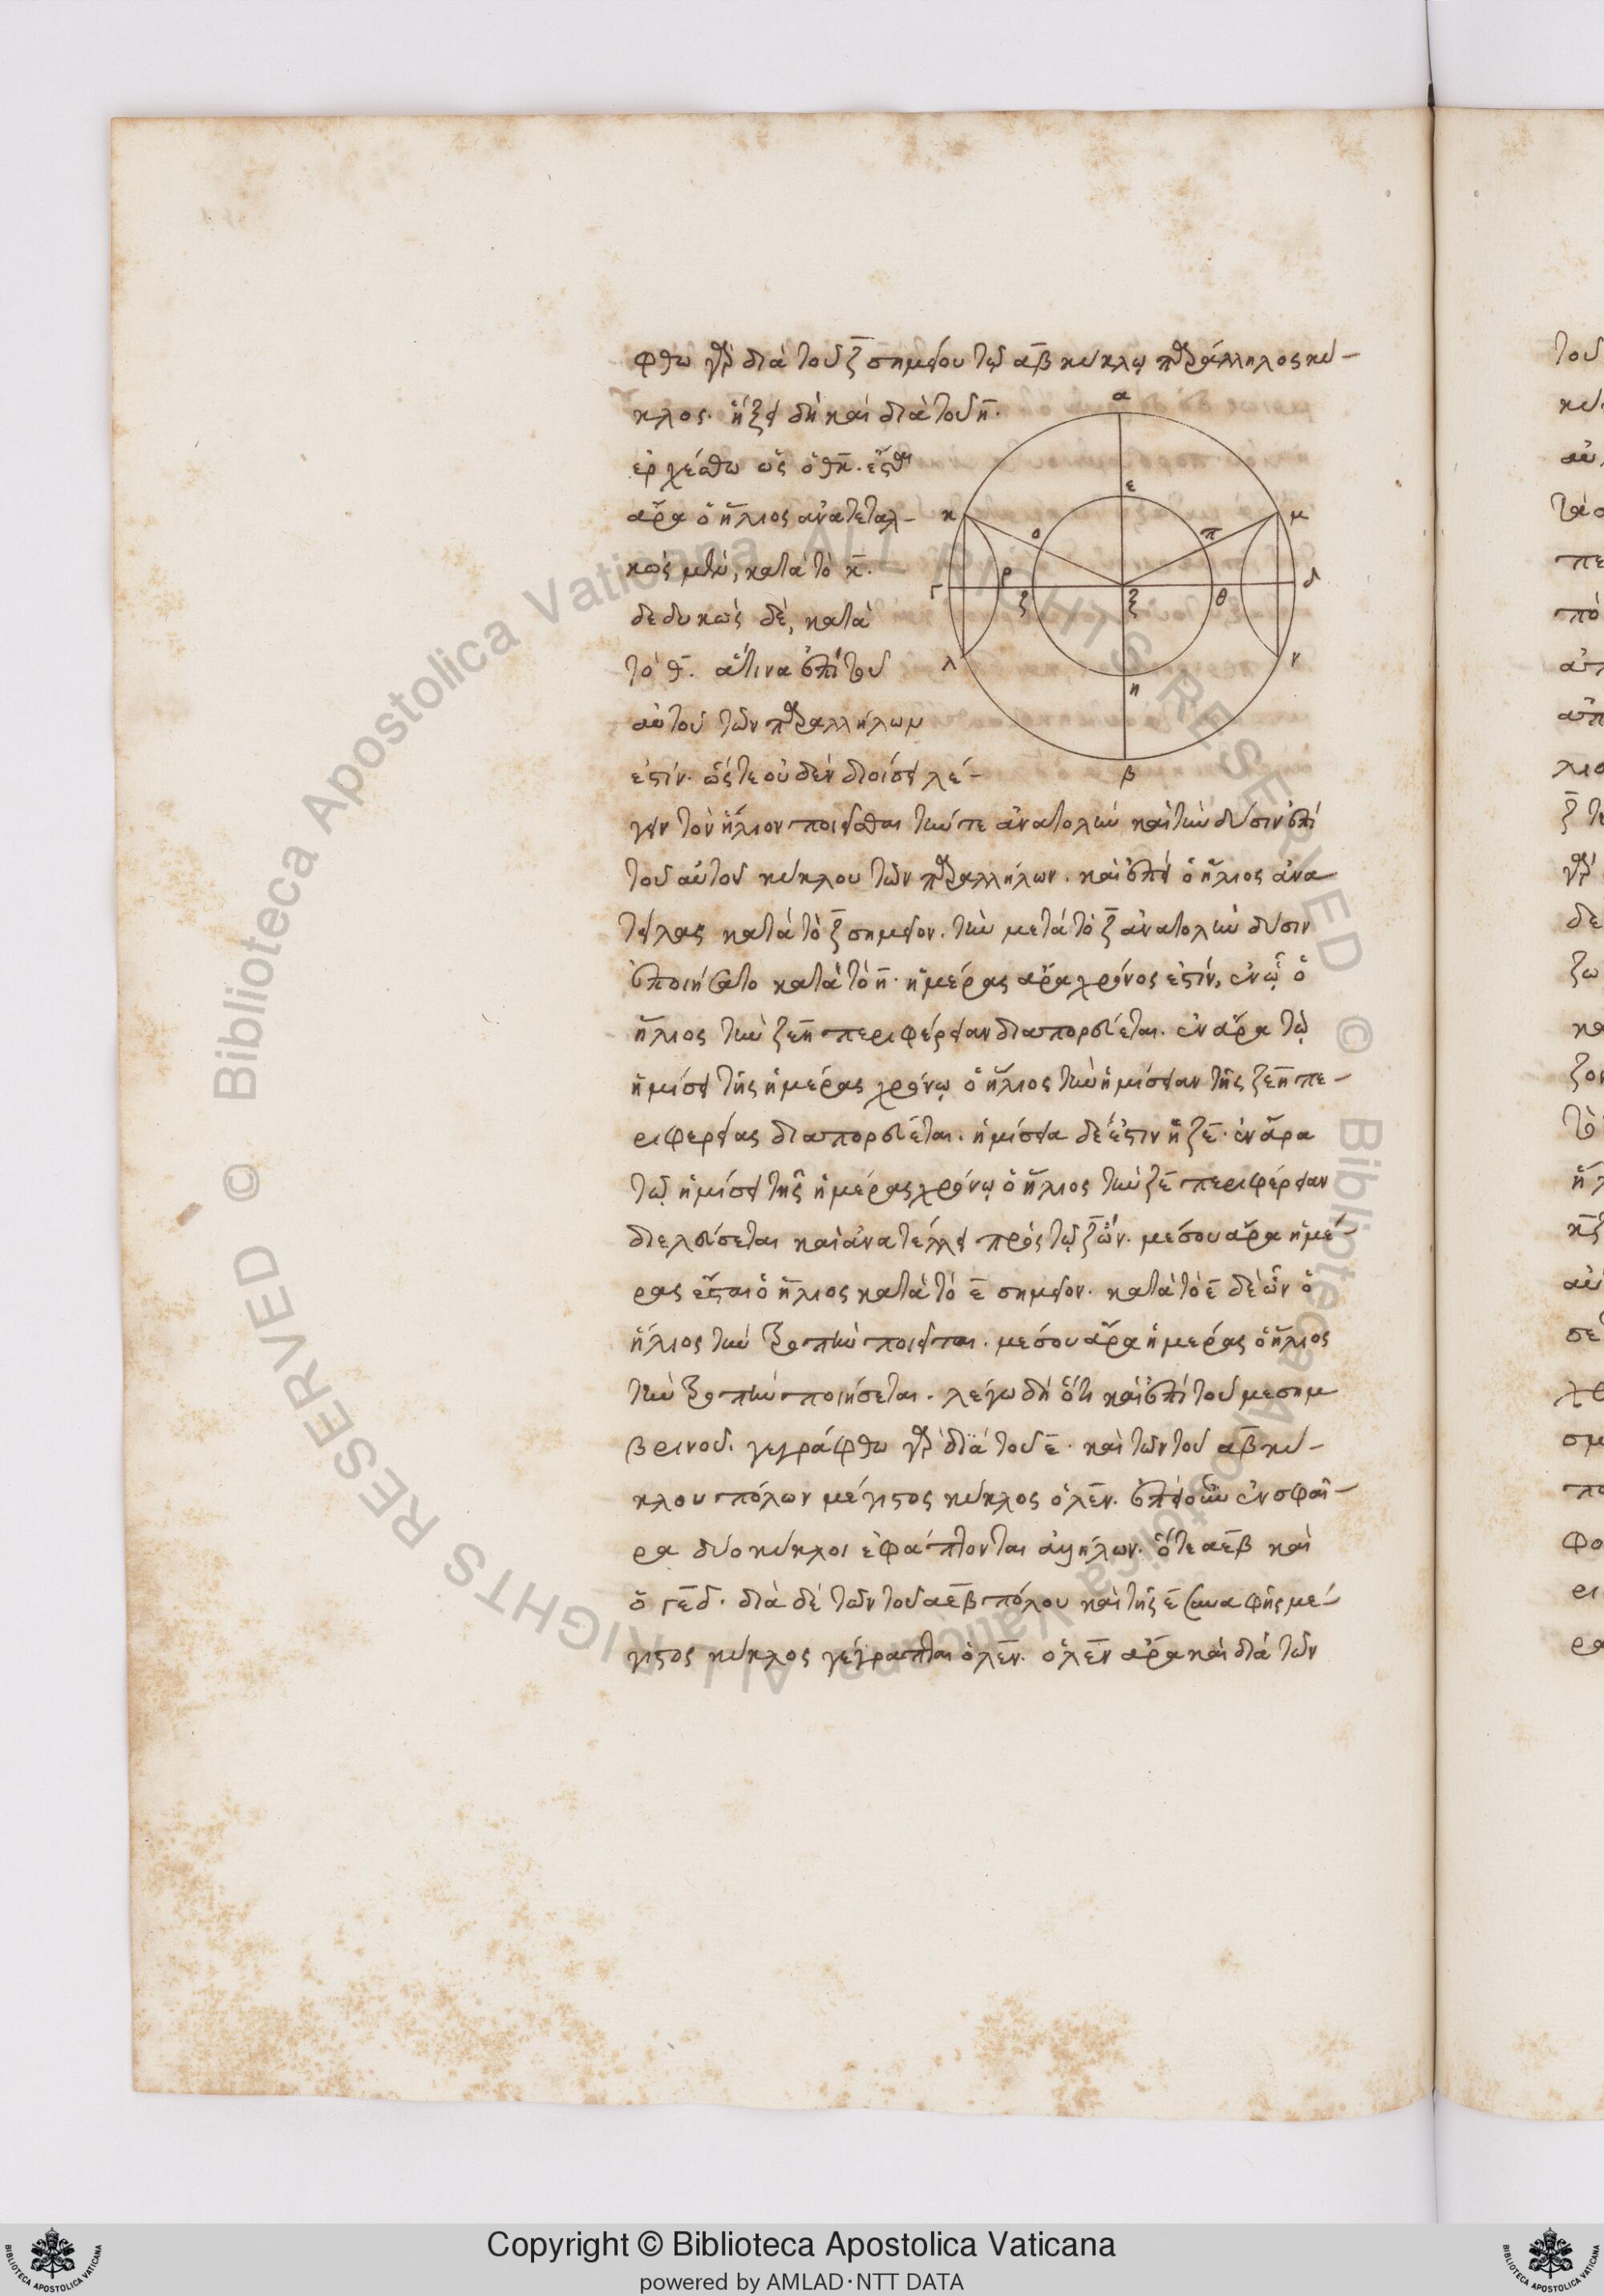 φθω γὰρ διὰ τοῦ ζ̄ σημείου τῷ ᾱβ κύκλῳ παράλληλος κύ-
κλος· ἥξει δὴ καὶ διὰ τοῦ η̄.
ἐρχέσθω ὡς ὁ θ̄κ̄. ἔσται
ἄρα ὁ ἥλιος ἀνατεταλ-
κὼς μὲν, κατὰ τὸ κ̄.
δεδυκὼς δὲ, κατὰ
τὸ θ̄. ἅτινα ἐπὶ τοῦ
αὐτοῦ τῶν παραλλήλων
ἐστίν. ὥστε οὐδὲν διοίσει λέ-
γειν τὸν ἥλιον ποιεῖσθαι τήν τε ἀνατολὴν καὶ τὴν δύσιν ἐπὶ
τοῦ αὐτοῦ κύκλου τῶν παραλλήλων. καὶ ἐπεὶ ὁ ἥλιος ἀνα
τείλας κατὰ τὸ ζ̄ σημεῖον. τὴν μετὰ τὸ ζ̄ ἀνατολὴν δύσιν
ἐποιήσατο κατὰ τὸ η̄· ἡμέρας ἄρα χρόνος ἐστίν, ἐν ᾧ ὁ
ἥλιος τὴν ζεη περιφέρειαν διαπορεύεται. ἐν ἄρα τῷ
ἡμίσει τῆς ἡμέρας χρόνῳ ὁ ἥλιος τὴν ἡμίσειαν τῆς ζεη πε-
ριφερείας διαπορεύεται. ἡμίσεια δέ ἐστιν ἡ ζε̄· ἐν ἄρα
τῷ ἡμίσει τῆς ἡμέρας χρόνῳ ὁ ἥλιος τὴν ζε̄ περιφέρειαν
διελεύσεται καὶ ἀνατέλλει πρὸς τῷ ζ̄ ὤν. μέσου ἄρα ἡμέ-
ρας ἔσται ὁ ἥλιος κατὰ τὸ ε̄ σημεῖον. κατὰ τὸ ε̄ δὲ ὢν ὁ
ἥλιος τὴν τροπὴν ποιεῖται. μέσου ἄρα ἡμέρας ὁ ἥλιος
τὴν τροπὴν ποιήσεται. λέγω δὴ ὅτι καὶ ἐπὶ τοῦ μεσημ
βρινοῦ. γεγράφθω γὰρ διὰ τοῦ ε̄. καὶ τῶν τοῦ ᾱβ κύ-
κλου πόλων μέγιστος κύκλος ὁ λεν. ἐπεὶ οὖν ἐν σφαί-
ρα δύο κύκλοι ἐφάπτονται ἀλλήλων. ὅ τε αεβ καὶ
ὁ γεδ. διὰ δὲ τῶν τοῦ αεβ πόλου καὶ τῆς ε̄ συναφῆς μέ-
γιστος κύκλος γέγραπται ὁ λεν. ὁ λεν ἄρα καὶ διὰ τῶν
α
ε
κ
μ
ο
π
ρ
γ
ζ
ξ
θ
δ
λ
ν
η
β
© Biblioteca Apostolica Vaticana ALL RIGHTS RESERVED © Biblioteca Apostolica Vaticana ALL RIGHTS RESERVED
Copyright © Biblioteca Apostolica Vaticana
powered by AMLAD·NTT DATA
BIBLIOTECA APOSTOLICA VATICANA
BIBLIOTECA APOSTOLICA VATICANA